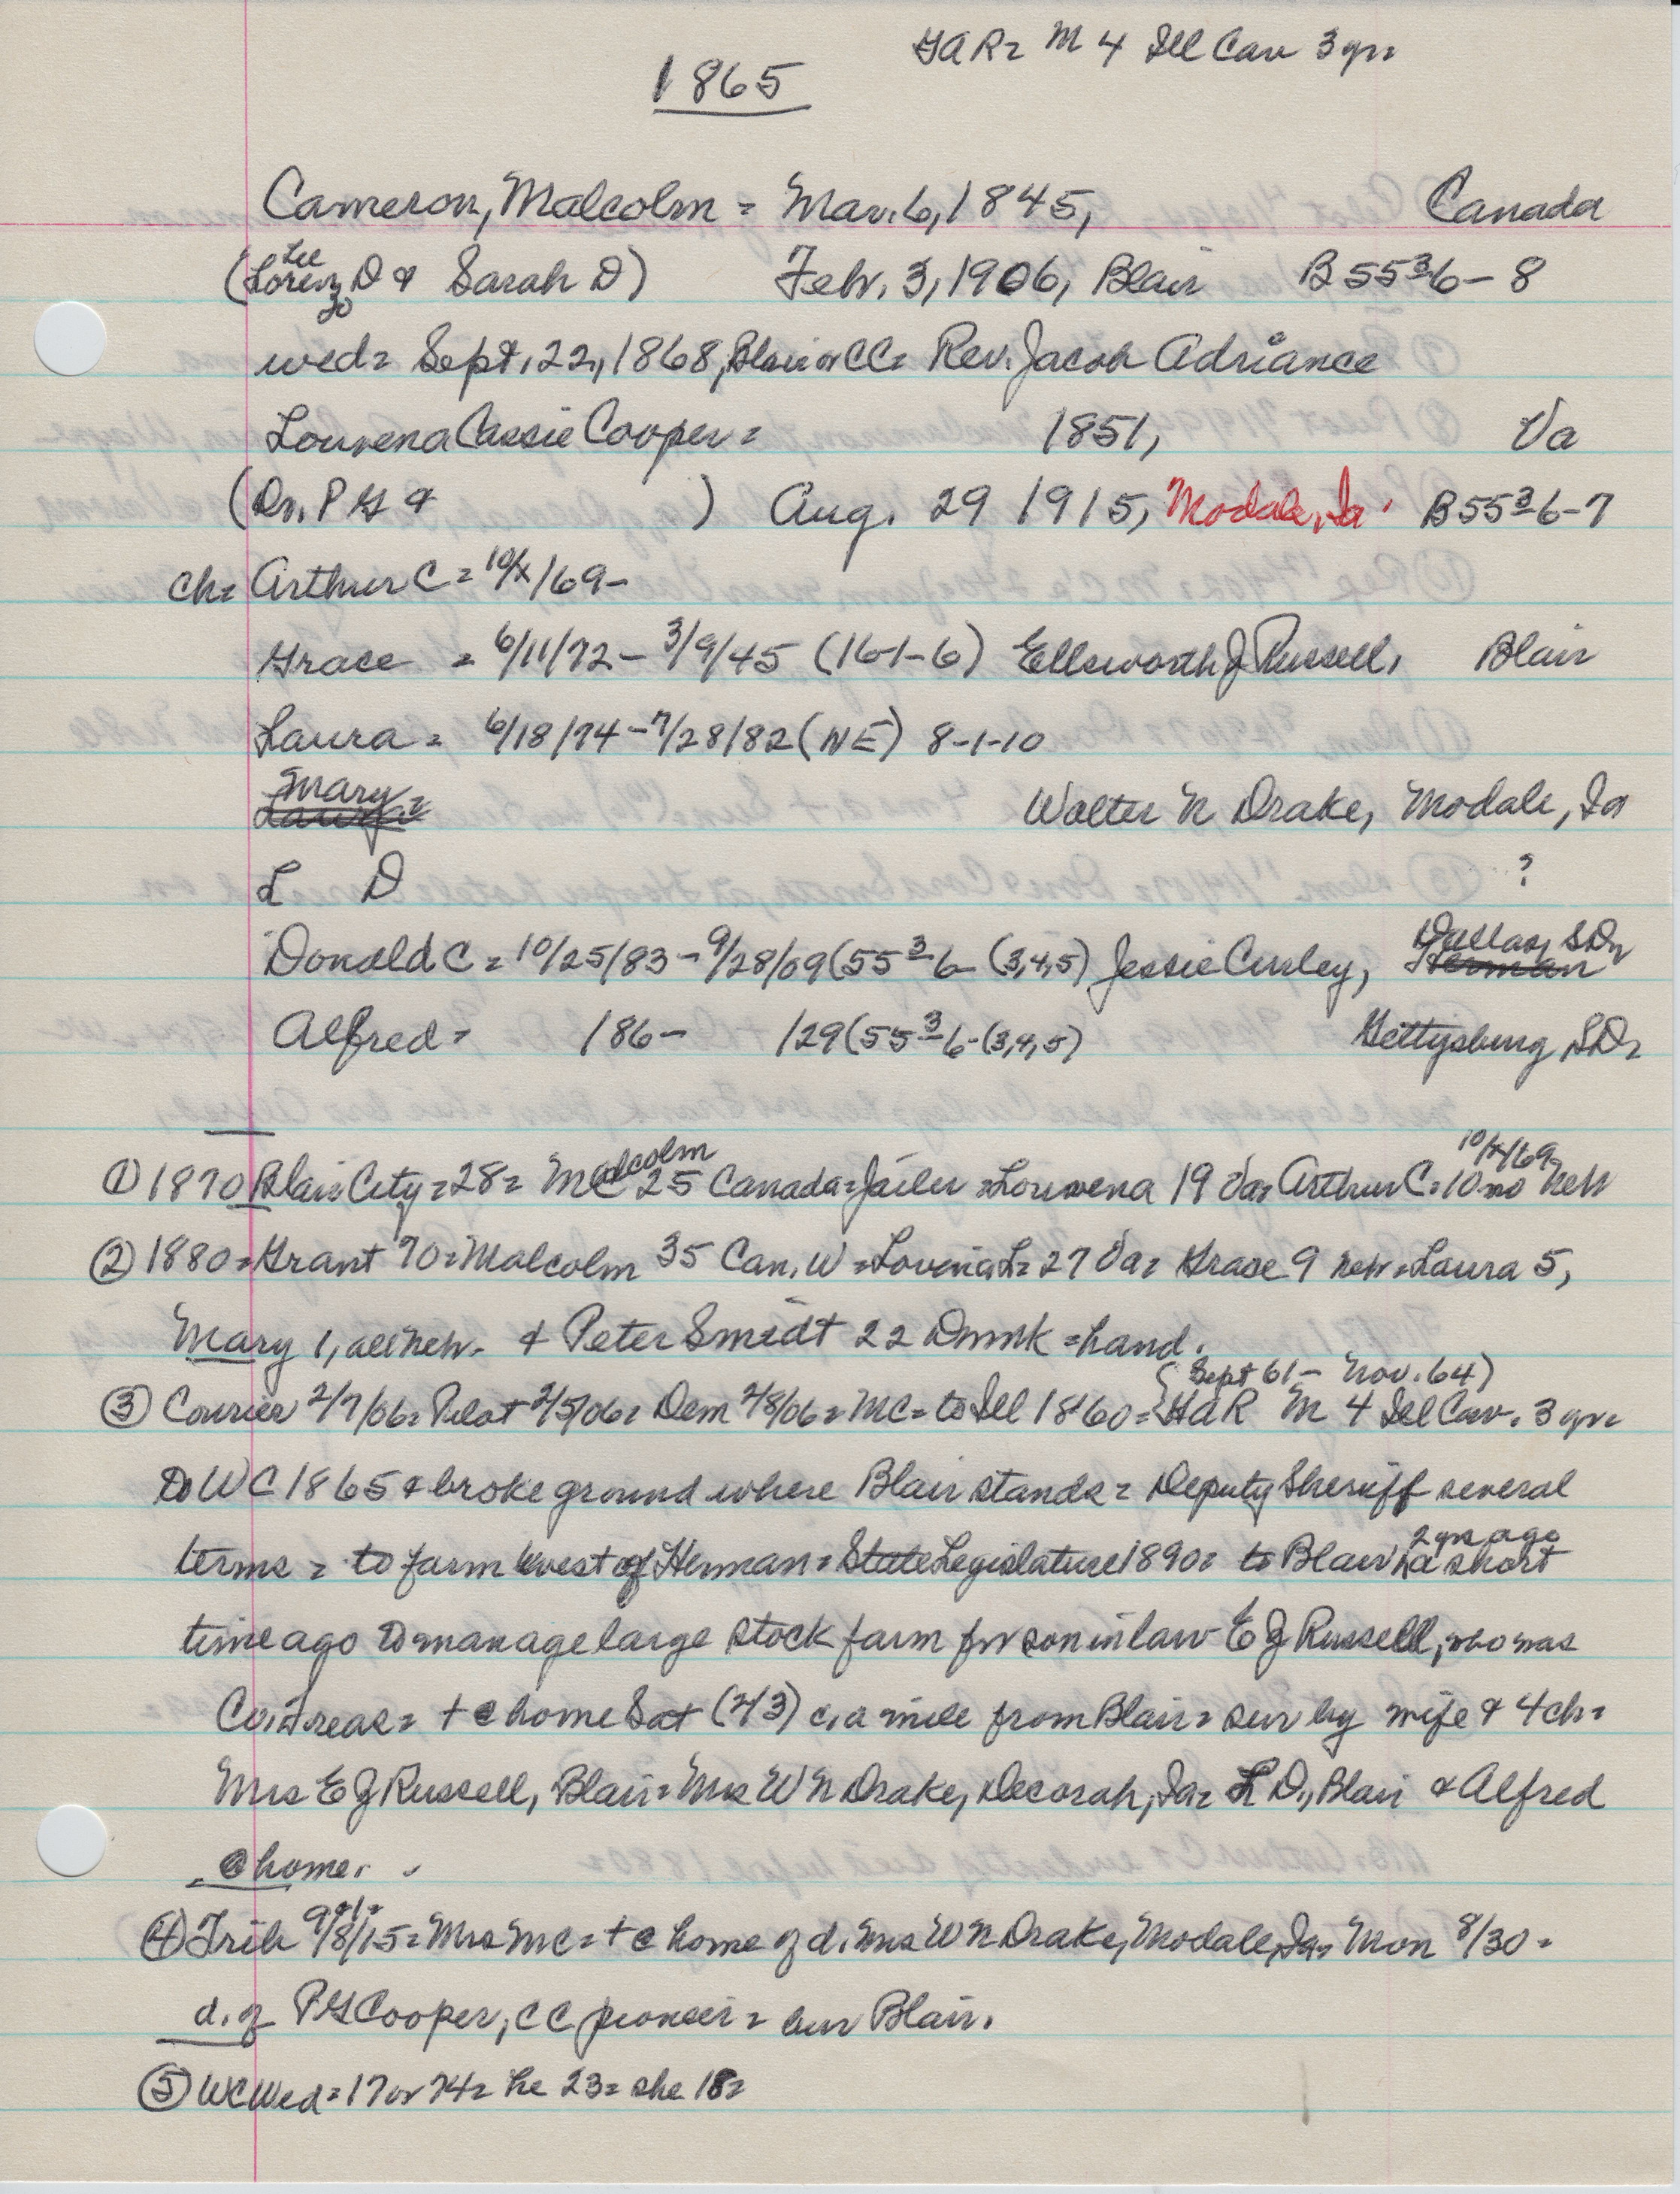 GAR= M 4 Ill Cav 3 yr=
1865
Cameron, Malcolm = Mar. 6, 1845, Canada
(Lorenzo Lee D & Sarah D) Feb. 3, 1906, Blair B 55 3/6-8
wed= Sept. 22, 1868, Blair or CC= Rev. Jacob Adriance
Louvena Cassie Cooper= 1851, Va
(Dr. P G & ) Aug. 29 1915, Modale, Ia. B 55 3/6-7
ch= Arthur C = 10/x/69-
Grace = 6/11/72 - 3/9/45 (16-1-6) Ellsworth J Russell, Blair
Laura = 6/18/74 - 7/28/82 (NE) 8-1-10
Mary= Walter N Drake, Modale, Ia
L D ?
Donald C = 10/25/83 - 9/28/09 (55 3/6 (3,4,5) Jessie Curley, Dallas, SD= Herman
Alfred= 186- 129 (55 3/6-(3,4,5) Gettysburg, SD=
① 1870 Blair City = 28 = Malcolm 25 Canada = Jailer = Louvena 19 Va= Arthur C= 10 mo 10/x/69 Neb
② 1880= Grant 70= Malcolm 35 Can. W = Lovinia L= 27 Va= Grace 9 neb= Laura 5,
Mary 1, all neb. & Peter Smidt 22 Dnmk = hand.
(Sept 61 - Nov. 64)
③ Courier 2/7/06= Pilot 2/5/06= Dem 2/8/06= MC= to Ill 1860= GAR M 4 Ill Cav. 3 yr=
to WC 1865 & broke ground where Blair stands= Deputy Sheriff several
terms = to farm west of Herman= State Legislature 1890= to Blair 2 yrs ago a short
time ago to manage large stock farm for son in law E J Russell, who was
Co. Treas= + @ home Sat (2/3) c. a mile from Blair= sur by wife & 4 ch=
Mrs E J Russell, Blair= Mrs W N Drake, Decorah, Ia= L D, Blair & Alfred
@ home.
④ Trib 9/8/15= Mrs MC= + @ home of d. Mrs W N Drake, Modale, Ia= Mon 8/30=
d. of P G Cooper, CC pioneer = bur Blair.
⑤ WC Wed= 17 or 74= he 23= she 18=